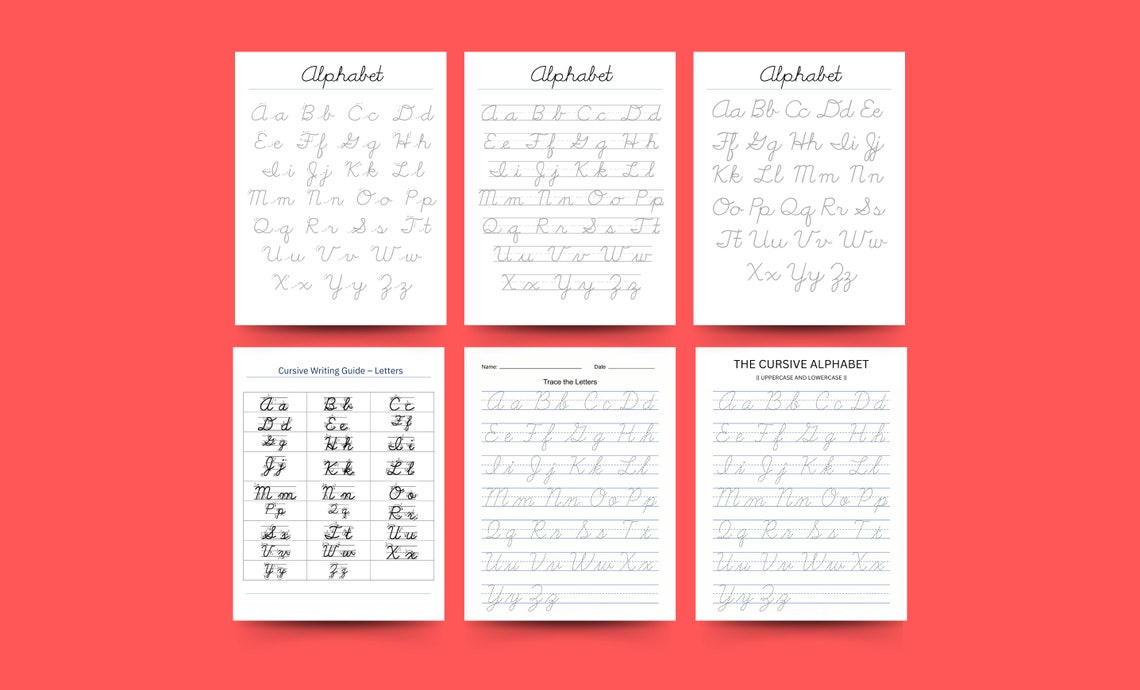 Alphabet
Aa Bb Cc Dd
Ee Ff Gg Hh
Ii Jj Kk Ll
Mm Nn Oo Pp
Qq Rr Ss Tt
Uu Vv Ww
Xx Yy Zz
Alphabet
Aa Bb Cc Dd
Ee Ff Gg Hh
Ii Jj Kk Ll
Mm Nn Oo Pp
Qq Rr Ss Tt
Uu Vv Ww
Xx Yy Zz
Alphabet
Aa Bb Cc Dd Ee
Ff Gg Hh Ii Jj
Kk Ll Mm Nn
Oo Pp Qq Rr Ss
Tt Uu Vv Ww
Xx Yy Zz
Cursive Writing Guide – Letters
A a B b C c
D d E e F f
G g H h I i
J j K k L l
M m N n O o
P p Q q R r
S s T t U u
V v W w X x
Y y Z z
Name: Date
Trace the Letters
Aa Bb Cc Dd
Ee Ff Gg Hh
Ii Jj Kk Ll
Mm Nn Oo Pp
Qq Rr Ss Tt
Uu Vv Ww Xx
Yy Zz
THE CURSIVE ALPHABET
|| UPPERCASE AND LOWERCASE ||
Aa Bb Cc Dd
Ee Ff Gg Hh
Ii Jj Kk Ll
Mm Nn Oo Pp
Qq Rr Ss Tt
Uu Vv Ww Xx
Yy Zz